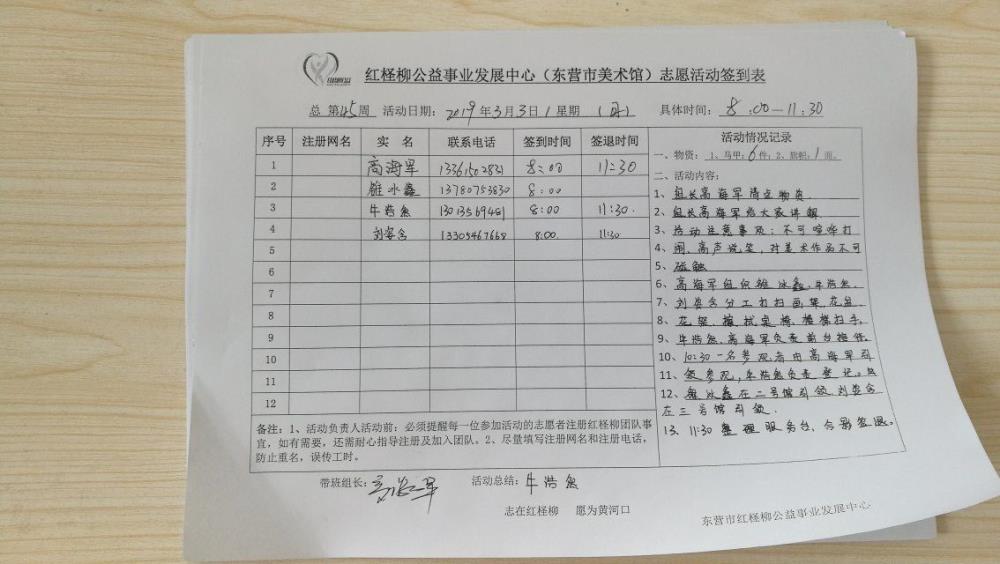 红柽柳公益事业发展中心（东营市美术馆）志愿活动签到表
总 第45周 活动日期：2019年3月3日 星期 具体时间：8:00—11:30
序号 注册网名 实 名 联系电话 签到时间 签退时间
1 高海军 8:00 11:30
2 雒冰鑫 13780753830 8:00
3 牛浩然 8:00 11:30
4 刘姿含 13305467668 8:00 11:30
5
6
7
8
9
10
11
12
备注：1、活动负责人活动前：必须提醒每一位参加活动的志愿者注册红柽柳团队事
宜，如有需要，还需耐心指导注册及加入团队。2、尽量填写注册网名和注册电话，
防止重名，误传工时。
活动情况记录
一、物资：1、马甲：6件；2、旗帜：1面。
二、活动内容：
1、组长高海军清点物资
2、组长高海军给大家讲解
3、活动注意事项：不可喧哗打
4、闹、高声说笑，对美术作品不可
5、碰触
6、高海军组织雒冰鑫、牛浩然、
7、刘姿含分工打扫画架、花盆、
8、花架、擦拭桌椅、楼梯扶手。
9、牛浩然、高海军负责前台接待。
10、10:30一名参观者由高海军引
11、领参观，牛浩然负责登记。
12、雒冰鑫在二号馆引领，刘姿含
在三号馆引领。
13、11:30整理服务台，合影签退。
带班组长：高海军 活动总结：牛浩然
志在红柽柳 愿为黄河口
东营市红柽柳公益事业发展中心